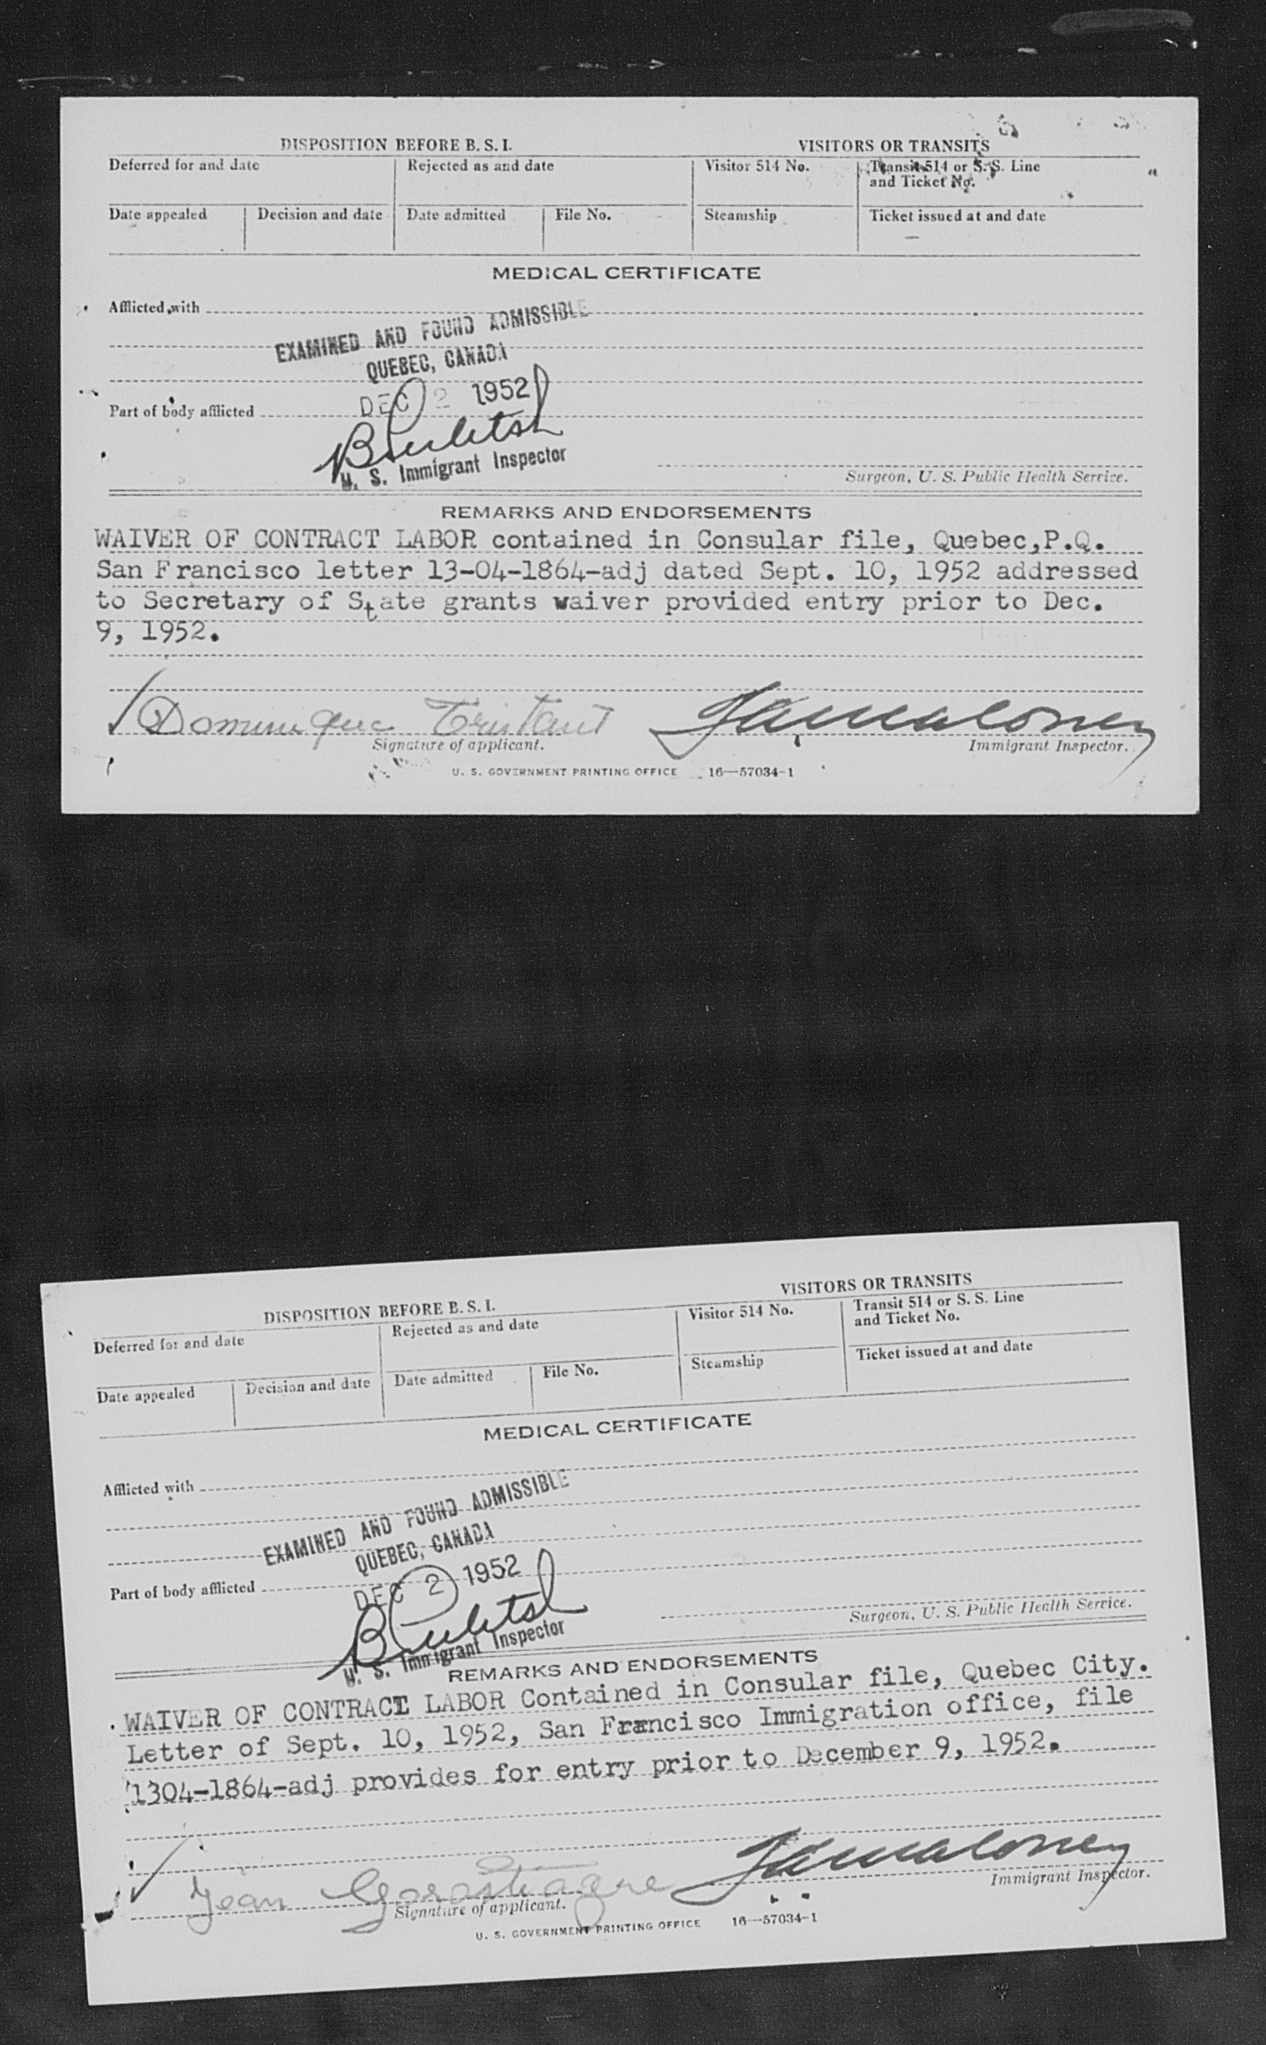 DISPOSITION BEFORE B. S. I.
VISITORS OR TRANSITS
Deferred for and date
Rejected as and date
Visitor 514 No.
Transit 514 or S. S. Line
and Ticket No.
Date appealed
Decision and date
Date admitted
File No.
Steamship
Ticket issued at and date
MEDICAL CERTIFICATE
Afflicted with
EXAMINED AND FOUND ADMISSIBLE
QUEBEC, CANADA
DEC 2 1952
Part of body afflicted
U. S. Immigrant Inspector
Surgeon, U. S. Public Health Service.
REMARKS AND ENDORSEMENTS
WAIVER OF CONTRACT LABOR contained in Consular file, Quebec,P.Q.
San Francisco letter 13-04-1864-adj dated Sept. 10, 1952 addressed
to Secretary of State grants waiver provided entry prior to Dec.
9, 1952.
Dominique Tristant
Signature of applicant.
Immigrant Inspector.
U. S. GOVERNMENT PRINTING OFFICE 16—57034-1
DISPOSITION BEFORE B. S. I.
VISITORS OR TRANSITS
Deferred for and date
Rejected as and date
Visitor 514 No.
Transit 514 or S. S. Line
and Ticket No.
Date appealed
Decision and date
Date admitted
File No.
Steamship
Ticket issued at and date
MEDICAL CERTIFICATE
Afflicted with
EXAMINED AND FOUND ADMISSIBLE
QUEBEC, CANADA
DEC 2 1952
Part of body afflicted
U. S. Immigrant Inspector
Surgeon, U. S. Public Health Service.
REMARKS AND ENDORSEMENTS
WAIVER OF CONTRACT LABOR Contained in Consular file, Quebec City.
Letter of Sept. 10, 1952, San Francisco Immigration office, file
1304-1864-adj provides for entry prior to December 9, 1952.
Jean
Signature of applicant.
Immigrant Inspector.
U. S. GOVERNMENT PRINTING OFFICE 16—57034-1